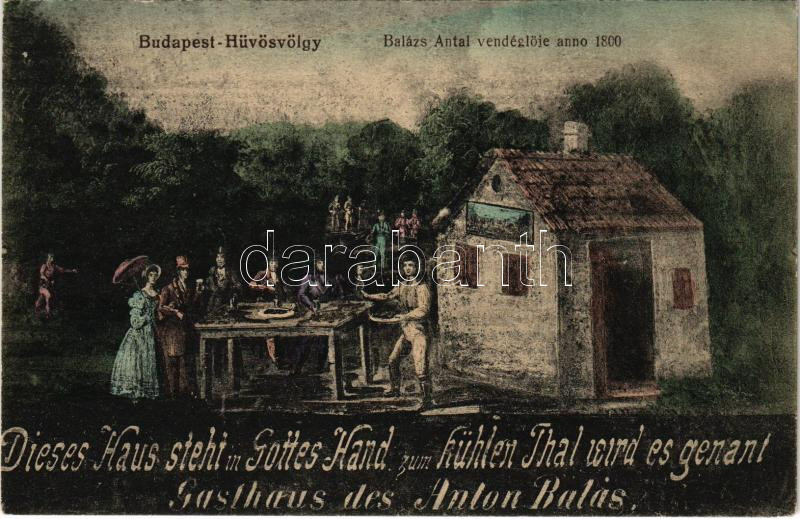 Budapest-Hüvösvölgy Balázs Antal vendéglöje anno 1800
darabanth
Dieses Haus steht in Gottes Hand, zum kühlen Thal wird es genant
Gasthaus des Anton Balás.